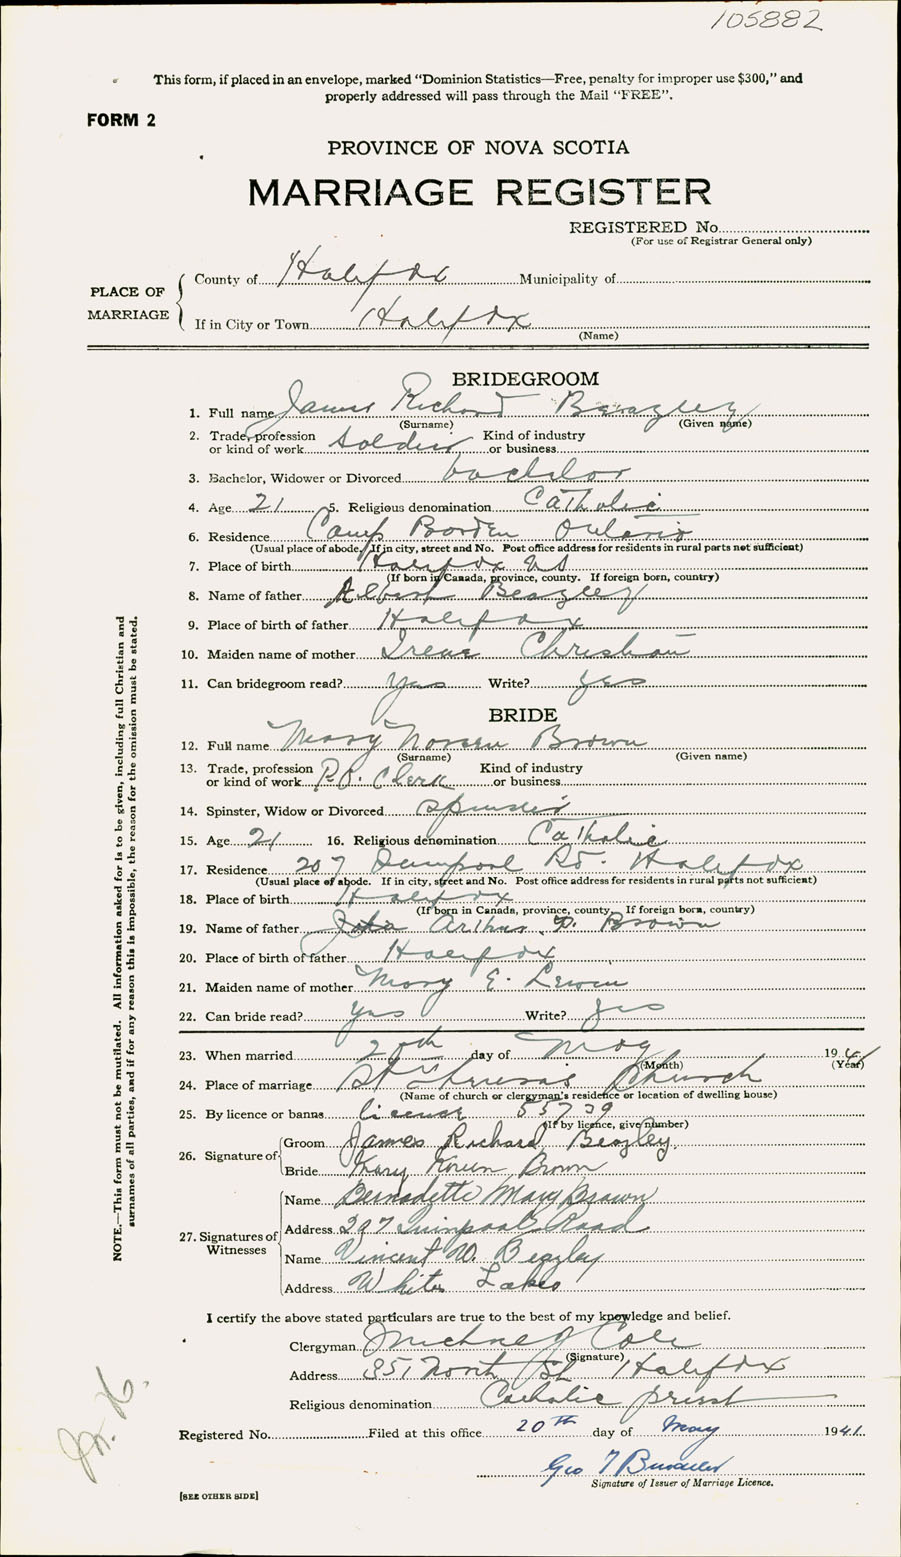 105882
This form, if placed in an envelope, marked "Dominion Statistics—Free, penalty for improper use $300," and
properly addressed will pass through the Mail "FREE".
FORM 2
PROVINCE OF NOVA SCOTIA
MARRIAGE REGISTER
REGISTERED No.
(For use of Registrar General only)
PLACE OF MARRIAGE
County of Halifax Municipality of
If in City or Town Halifax
(Name)
BRIDEGROOM
1. Full name James Richard Beazley
(Surname) (Given name)
2. Trade, profession or kind of work Soldier Kind of industry or business
3. Bachelor, Widower or Divorced bachelor
4. Age 21 5. Religious denomination Catholic
6. Residence Camp Borden Ontario
(Usual place of abode. If in city, street and No. Post office address for residents in rural parts not sufficient)
7. Place of birth Halifax NS
(If born in Canada, province, county. If foreign born, country)
8. Name of father Albert Beazley
9. Place of birth of father Halifax
10. Maiden name of mother Irene Christian
11. Can bridegroom read? yes Write? yes
BRIDE
12. Full name Mary Noreen Brown
(Surname) (Given name)
13. Trade, profession or kind of work P.O. Clerk Kind of industry or business
14. Spinster, Widow or Divorced spinster
15. Age 21 16. Religious denomination Catholic
17. Residence 207 Quinpool Rd. Halifax
(Usual place of abode. If in city, street and No. Post office address for residents in rural parts not sufficient)
18. Place of birth Halifax
(If born in Canada, province, county. If foreign born, country)
19. Name of father Arthur Brown
20. Place of birth of father Halifax
21. Maiden name of mother Mary E. Lewin
22. Can bride read? yes Write? yes
23. When married 20th day of May 1941
(Month) (Year)
24. Place of marriage St Theresa's Church
(Name of church or clergyman's residence or location of dwelling house)
25. By licence or banns license 55739
(If by licence, give number)
26. Signature of
Groom James Richard Beazley.
Bride Mary Noreen Brown
27. Signatures of Witnesses
Name Bernadette Mary Brown
Address 207 Quinpool Road
Name Vincent W. Beazley
Address Whites Lake
I certify the above stated particulars are true to the best of my knowledge and belief.
Clergyman Michael Cole
(Signature)
Address 351 North St Halifax
Religious denomination Catholic priest
Registered No. Filed at this office 20th day of May 1941.
Geo
Signature of Issuer of Marriage Licence.
[SEE OTHER SIDE]
NOTE.—This form must not be mutilated. All information asked for is to be given, including full Christian and
surnames of all parties, and if for any reason this is impossible, the reason for the omission must be stated.